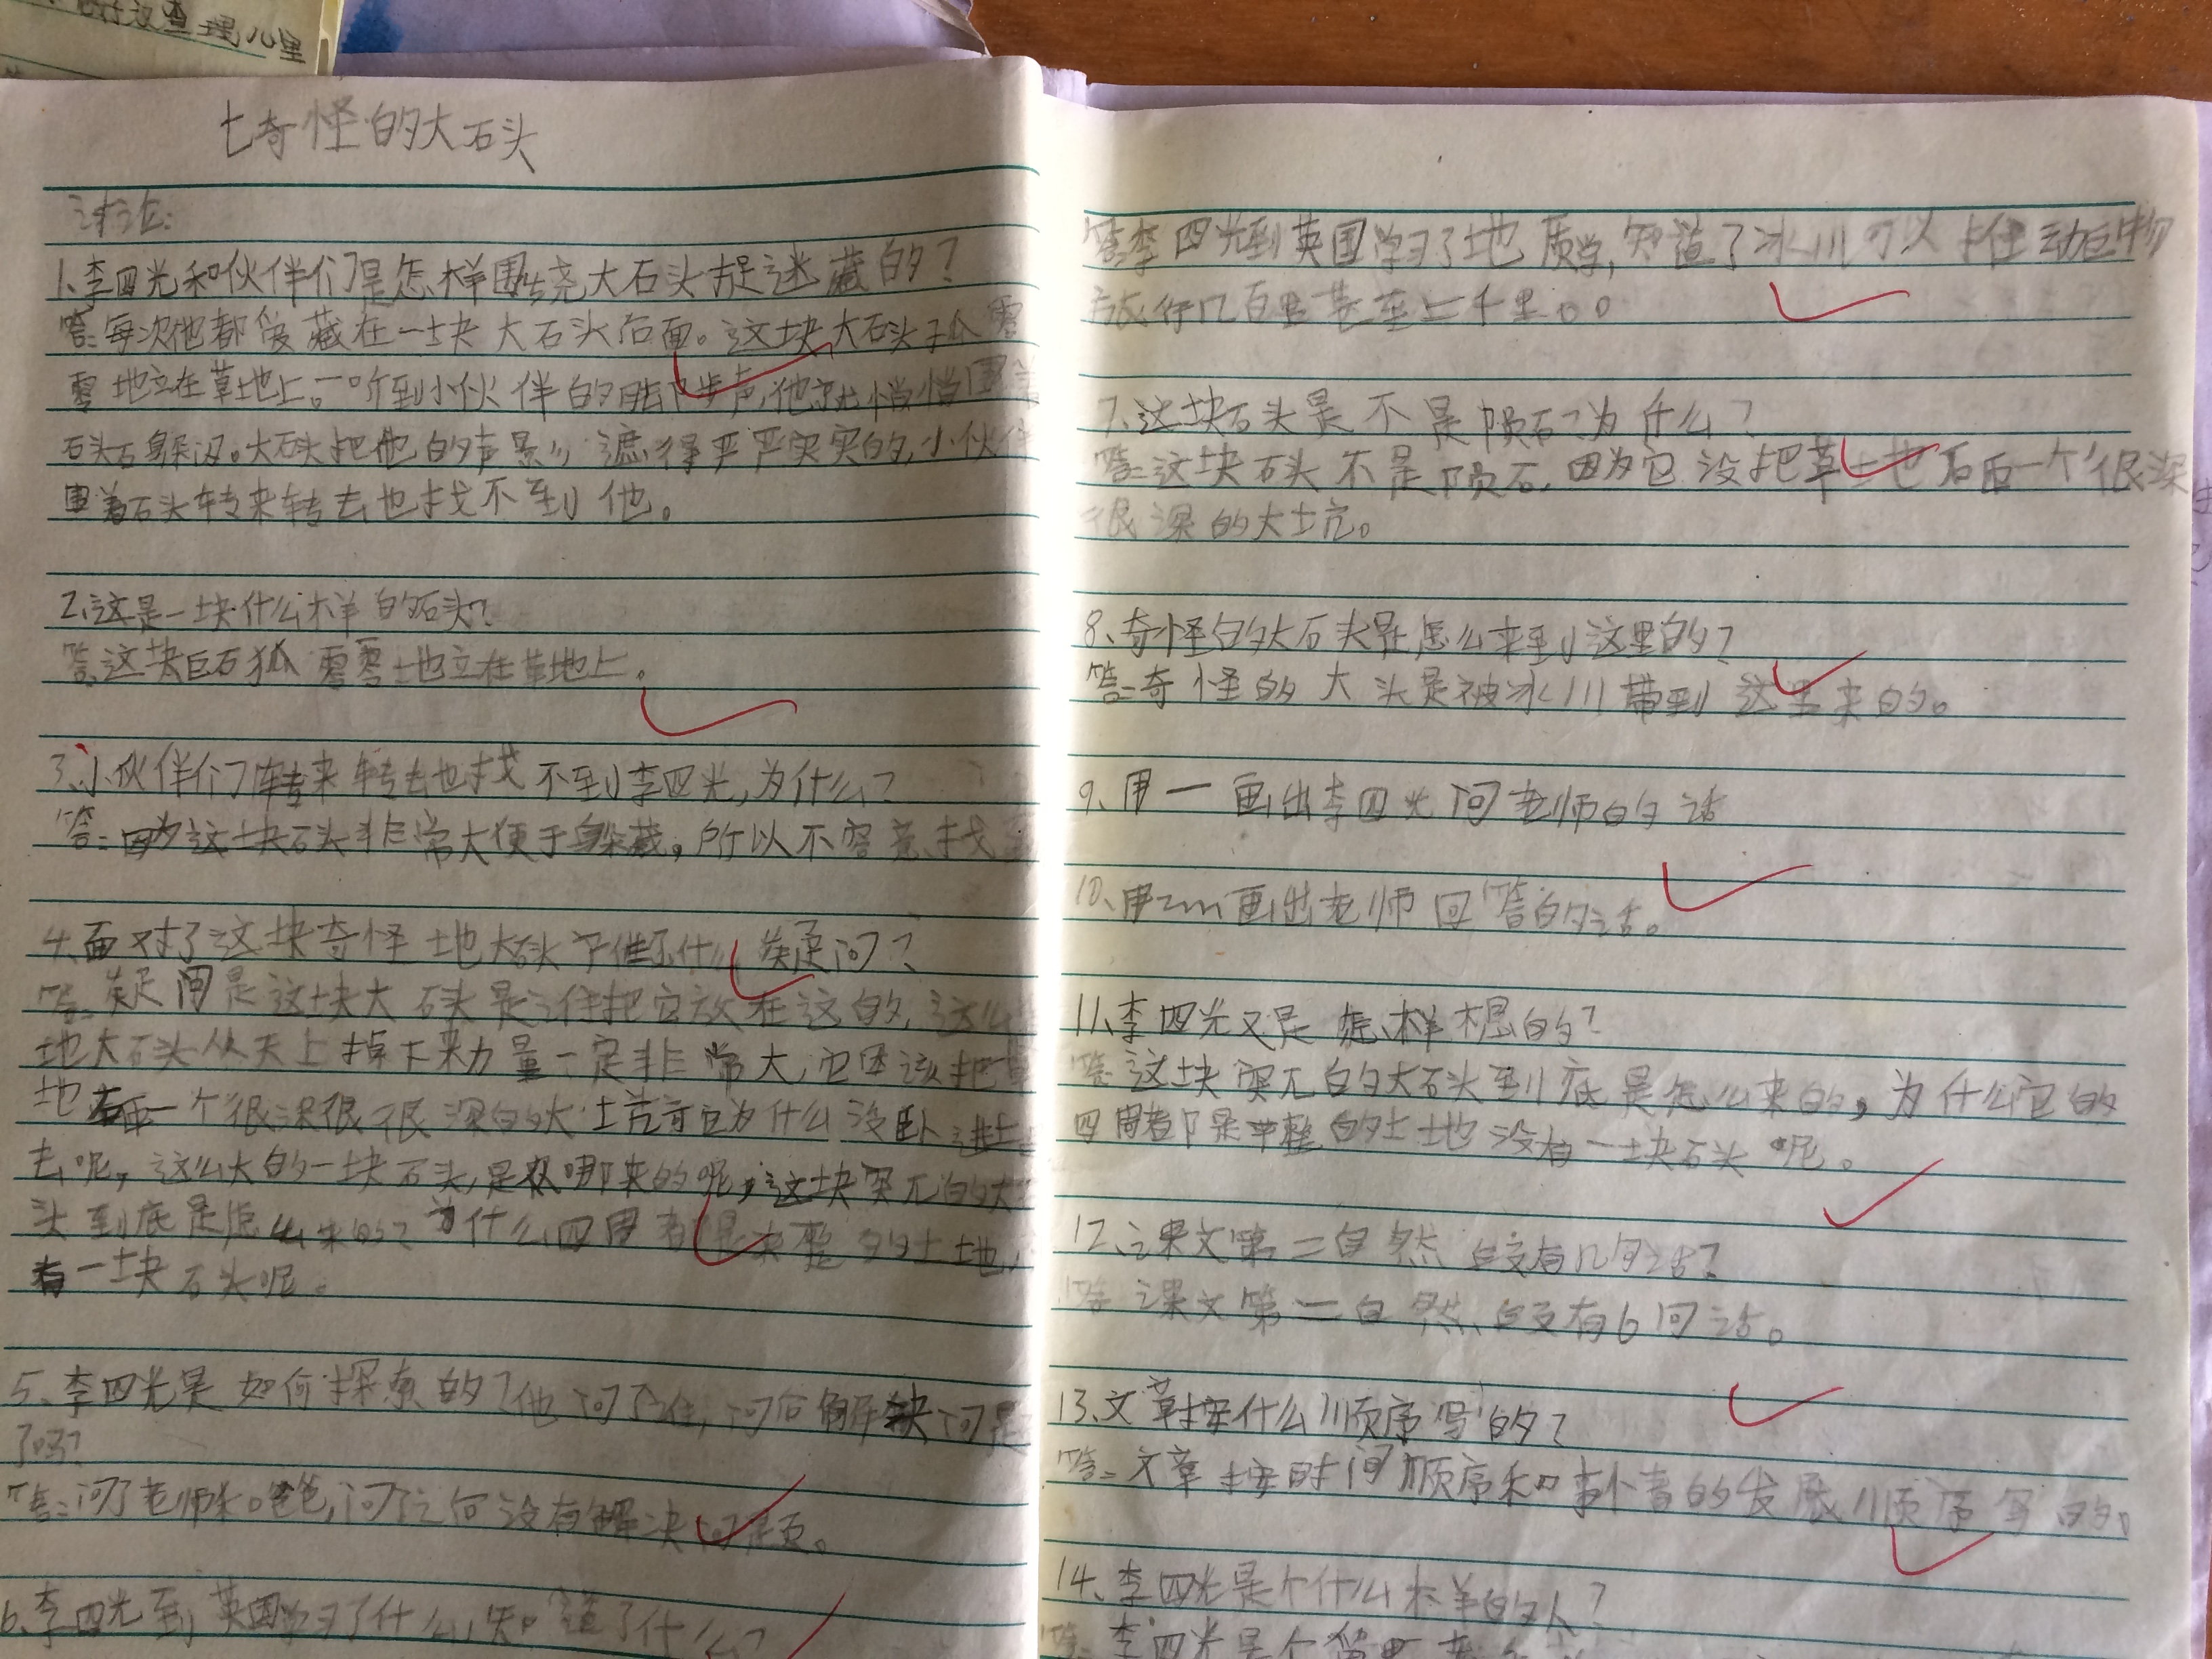 查理九里
七奇怪的大石头
讨论:
1、李四光和伙伴们是怎样围绕大石头捉迷藏的?
答:每次他都爱藏在一块大石头后面。这块大石头孤零
零地立在草地上。一听到小伙伴的脚步声,他就悄悄围着
石头后躲闪。大石头把他的声影遮得严严实实的,小伙伴
围着石头转来转去也找不到他。
2、这是一块什么样的石头?
答:这块巨石孤零零地立在草地上。
3、小伙伴们转来转去也找不到李四光,为什么?
答:因为这块石头非常大便于躲藏,所以不容易找
4、面对了这块奇怪地大石头产生了什么疑问?
答:疑问是这块大石头是谁把它放在这的,这么
地大石头从天上掉下来力量一定非常大,它应该把草
地 一个很深很很深的大土坑可它为什么没卧进土
去呢,这么大的一块石头,是从哪来的呢,这块突兀的大石
头到底是怎么来的?为什么四周都是平整的土地,
有一块石头呢。
5、李四光是如何探索的?他问了谁,问后解决问题
了吗?
答:问了老师和爸爸,问了之后没有解决问题。
6、李四光到英国学习了什么,知道了什么?
答:李四光到英国学习了地质学,知道了冰川可以推动巨物
旅行几百里甚至上千里。。
7、这块石头是不是陨石?为什么?
答:这块石头不是陨石,因为它没把草土地 一个很深
很深的大坑。
8、奇怪的大石头是怎么来到这里的?
答:奇怪的大头是被冰川带到这里来的。
9、用一画出李四光问老师的话
10、用﹏画出老师回答的话。
11、李四光又是怎样想的?
答:这块突兀的大石头到底是怎么来的,为什么它的
四周都是平整的土地没有一块石头呢。
12、课文第二自然段有几句话?
答:课文第二自然段有6问话。
13、文章按什么顺序写的?
答:文章按时间顺序和事 的发展顺序写的。
14、李四光是个什么样的人?
答:李四光是个